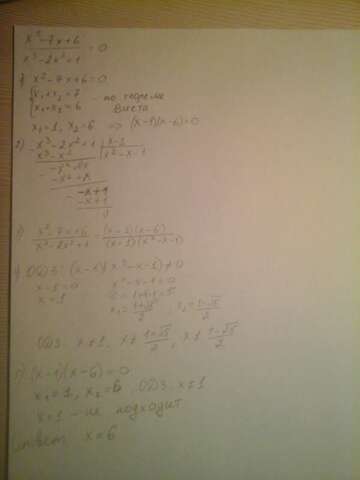 x²-7x+6 / x³-2x²+1 = 0
1) x²-7x+6=0
{ x₁+x₂=7 - по теореме
x₁*x₂=6 Виета
x₁=1, x₂=6 => (x-1)(x-6)=0
2) x³-2x²+1 | x-1
x³-x² | x²-x-1
-x²+x
-x+1
-x+1
0
3) x²-7x+6 / x³-2x²+1 = (x-1)(x-6) / (x-1)(x²-x-1)
4) ОДЗ: (x-1)(x²-x-1)≠0
x-1=0 x²-x-1=0
x=1 D=1+4=5
x₁= 1+√5 / 2 , x₂= 1-√5 / 2
ОДЗ: x≠1, x≠ 1+√5 / 2 , x≠ 1-√5 / 2
5) (x-1)(x-6)=0
x₁=1, x₂=6, ОДЗ: x≠1
x=1 - не подходит
ответ x=6